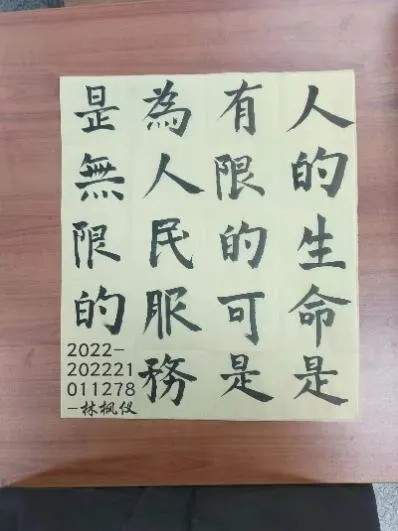 人的生命是
有限的可是
為人民服務
是無限的
2022-
202221
011278
-林枫仪